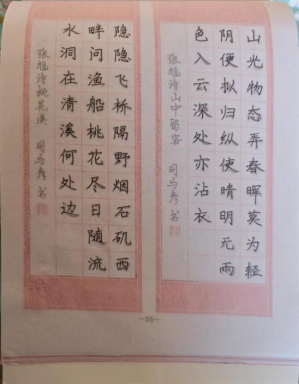 山光物态弄春晖莫为轻
阴便拟归纵使晴明无雨
色入云深处亦沾衣
张旭诗山中留客 司马彦书
隐隐飞桥隔野烟石矶西
畔问渔船桃花尽日随流
水洞在清溪何处边
张旭诗桃花溪 司马彦书